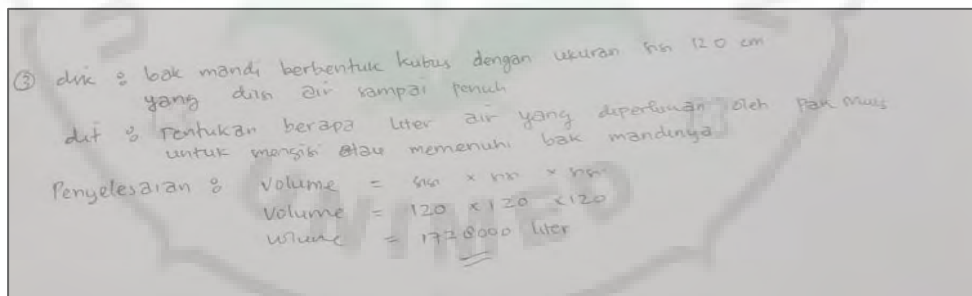 ③ dik : bak mandi berbentuk kubus dengan ukuran sisi 120 cm
yang diisi air sampai penuh
dit : Tentukan berapa liter air yang diperlukan oleh pak muis
untuk mengisi atau memenuhi bak mandinya
Penyelesaian : Volume = sisi x sisi x sisi
Volume = 120 x 120 x 120
volume = 1728000 liter